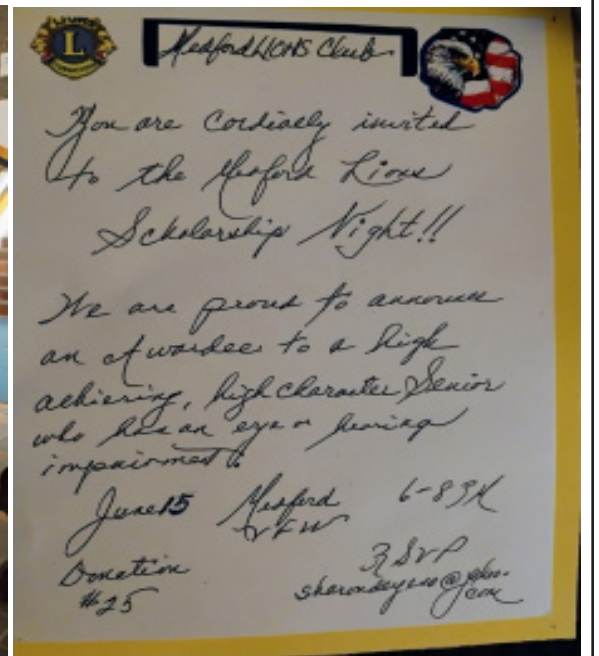 L
Medford LIONS Club
You are Cordially invited
to the Medford Lions
Scholarship Night!!
We are proud to announce
an Awardee to a high
achieving, high character Senior
who has an eye or hearing
impairment.
June 15 Medford 6-8PM
VFW
Donation RSVP
#25